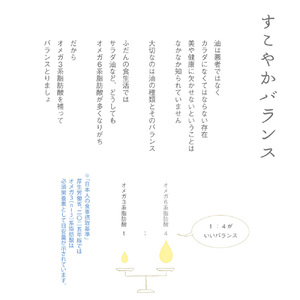 すこやかバランス
油は悪者ではなく
カラダになくてはならない存在
美や健康に欠かせないということは
なかなか知られていません
大切なのは油の種類とそのバランス
ふだんの食生活では
サラダ油など、どうしても
オメガ6系脂肪酸が多くなりがち
だから
オメガ3系脂肪酸を補って
バランスとりましょ
1:4が
いいバランス
オメガ6系脂肪酸 4
:
オメガ3系脂肪酸 1
※「日本人の食事摂取基準」
厚生労働省 二〇二五年版では
オメガ3(n-3)系脂肪酸は
必須栄養素として目安量が示されています。